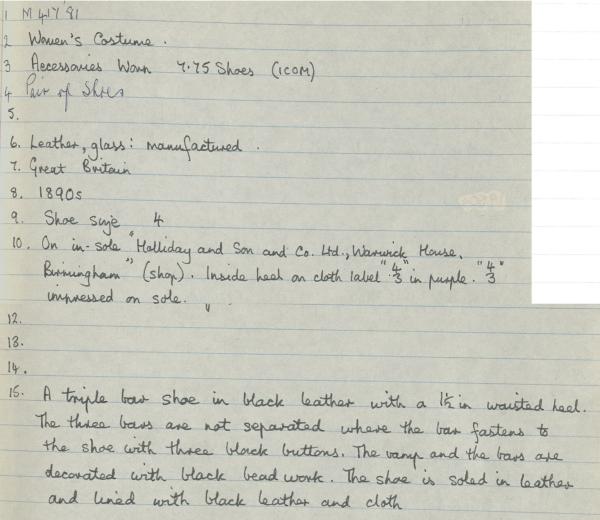 1 M 41'81
2 Women's Costume.
3 Accessories Worn 7.75 Shoes (ICOM)
4 Pair of Shoes
5.
6. Leather, glass: manufactured.
7. Great Britain
8. 1890s
9. Shoe size 4
10. On in-sole "Halliday and Son and Co. Ltd., Warwick House,
Birmingham" (shop). Inside heel on cloth label "4/3" in purple. "4/3"
impressed on sole.
12.
13.
14.
15. A triple bar shoe in black leather with a 1½ in waisted heel.
The three bars are not separated where the bar fastens to
the shoe with three black buttons. The vamp and the bars are
decorated with black bead work. The shoe is soled in leather
and lined with black leather and cloth